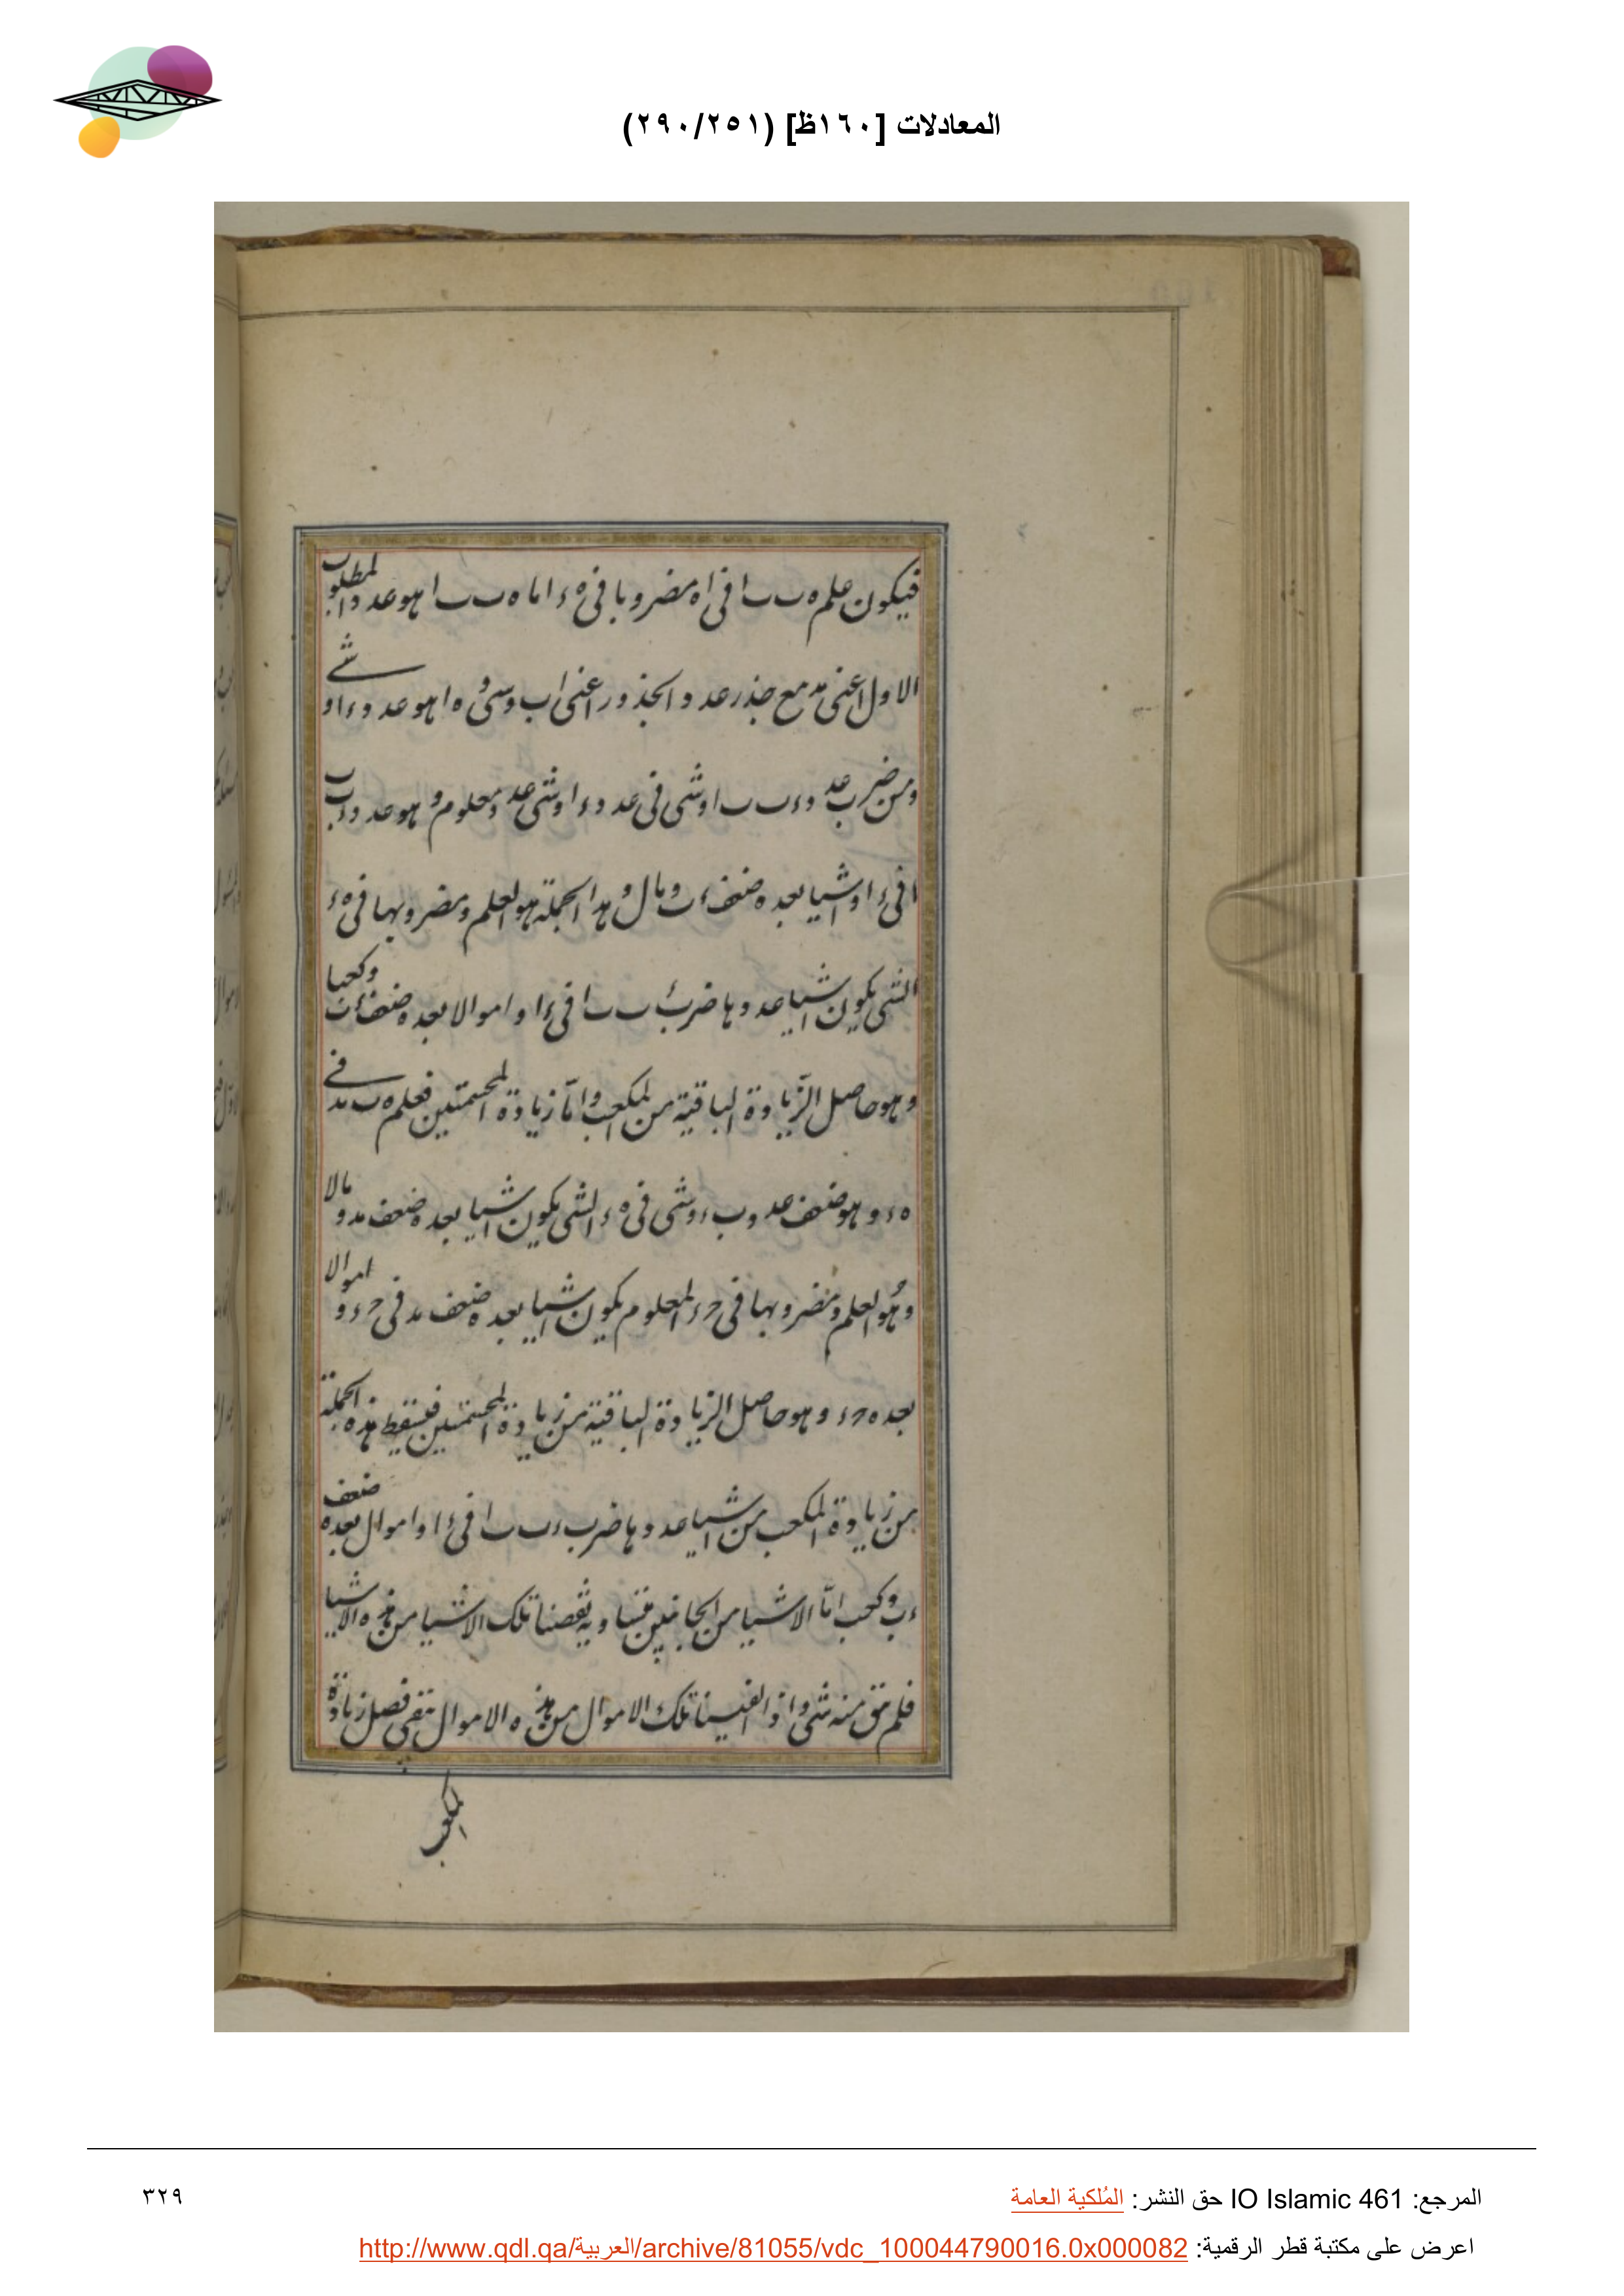 المعادلات [١٦٠ظ] (٢٩٠/٢٥١)
فيكون علم ه ب ب ا فى اه مضروبا فى ه ء اما ه ب ب ا هو عدد اب المطلوب
الاول اعنى مد مع جذر عدد الجذور اعنى اب وشئ و ه ا هو عدد ء ا و شے
ومن ضرب عدد ء ب ب ا وشى فى عدد ء ا وشى عدد معلوم و هو عدد ء ب ب
ا فى ء ا واشيا بعده ضعف ء ب ومال و هذا الجملة هو العلم ومضروبها فى ه ء
الشى يكون اشيا عددها ضرب ء ب ب ا فى ء ا واموالا بعده ضعف ء ب وكعبا
وهو حاصل الزيادة الباقية من المكعب وامّا زيادة المجسمتين فعلم ه ب مد فے
ه ء و هو ضعف عدد ب ء وشى فى ه ء الشى يكون اشيا بعده ضعف مد و مالا
وهو العلم ومضروبها فى ح ء المعلوم يكون اشيا بعده ضعف مد فى ح ء و اموالا
بعده ح ء وهو حاصل الزيادة الباقية من زيادة المجسمتين فيسقط هذه الجملة
من زيادة المكعب من اشيا عددها ضرب ء ب ب ا فى ء ا واموال بعده ضعف
ء ب وكعب امّا الاشيا من الجانبين متساوية نقصنا تلك الاشيا من هذه الاشيا
فلم تبق منه شى واذ القينا تلك الاموال من هذه الاموال تبقى فضل زيادة
المكعب
المرجع: IO Islamic 461 حق النشر: المُلكية العامة
٣٢٩
اعرض على مكتبة قطر الرقمية: http://www.qdl.qa/العربية/archive/81055/vdc_100044790016.0x000082